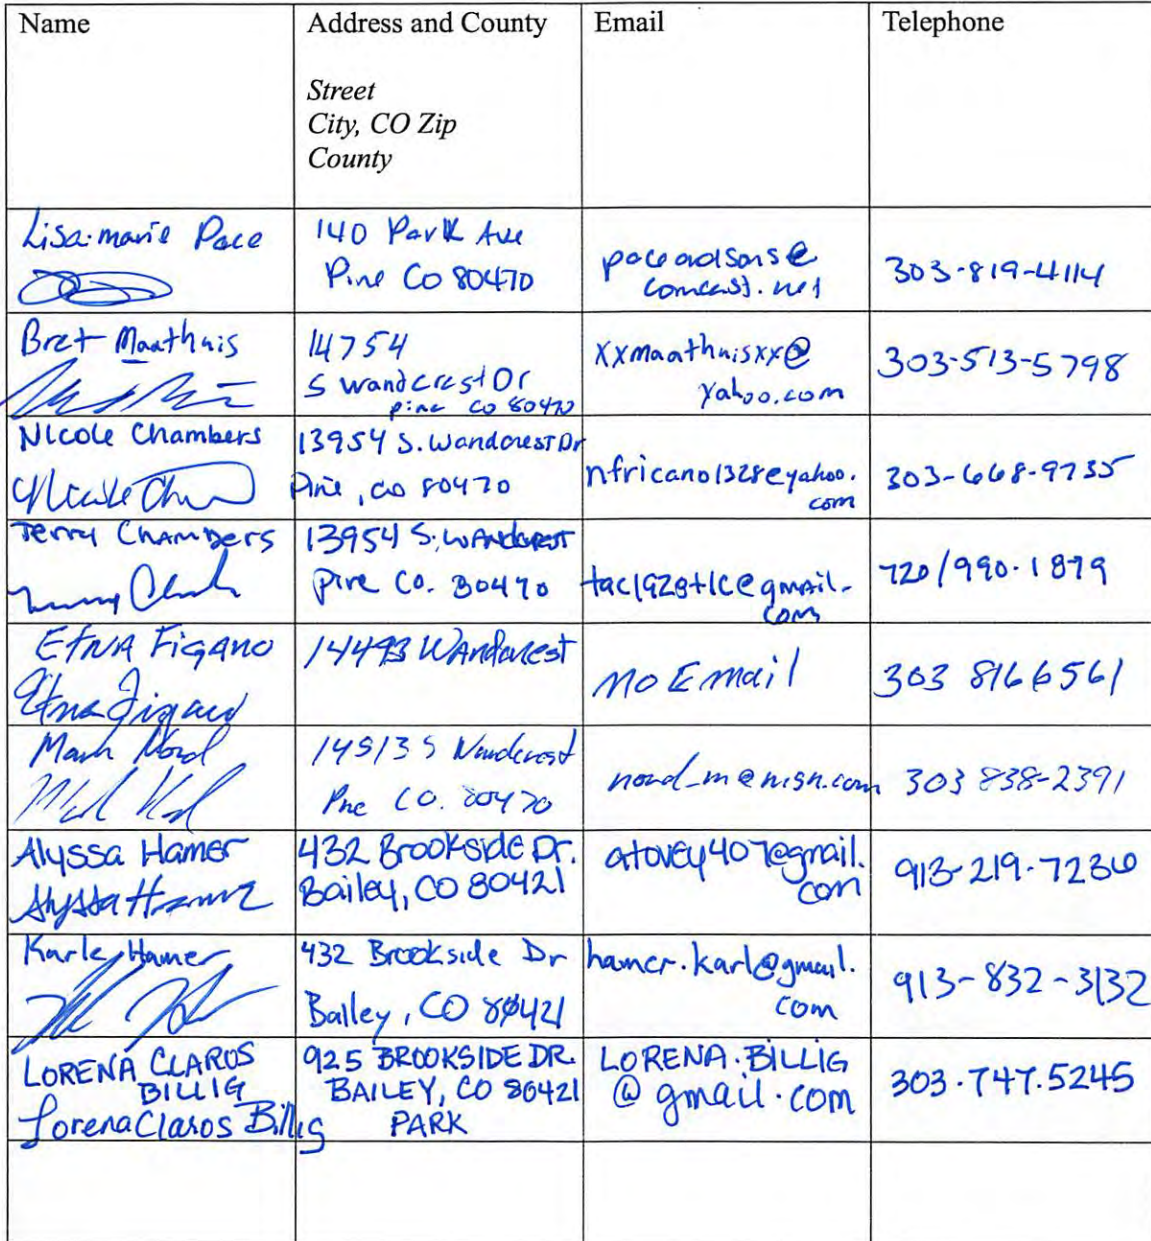 Name
Address and County
Email
Telephone
Street
City, CO Zip
County
Lisa-marie Pace
140 Park Ave
Pine Co 80470
paceandsons@
comcast.net
303-819-4114
Bret Maathuis
14754
S wandcrest Dr
pine co 80470
xxmaathuisxx@
yahoo.com
303-513-5798
Nicole Chambers
13954 S. Wandcrest Dr
Pine, co 80470
nfricano1328@yahoo.
com
303-668-9735
Terry Chambers
13954 S. Wandcrest
pine Co. 80470
@gmail.
com
720/990.1879
Etna Figano
Etna Figano
Wandcrest
No Email
303 8166561
Mark Nord
14513 S Wandcrest
Pne CO. 80470
nord_m@msn.com
303 838-2391
Alyssa Hamer
Alyssa Hamer
432 Brookside Dr.
Bailey, CO 80421
atovey407@gmail.
com
913-219-7236
Karl Hamer
432 Brookside Dr
Bailey, CO 80421
hamer.karl@gmail.
com
913-832-3132
LORENA CLAROS
BILLIG
Lorena Claros Billig
925 BROOKSIDE DR.
BAILEY, CO 80421
PARK
LORENA.BILLIG
@gmail.com
303.747.5245